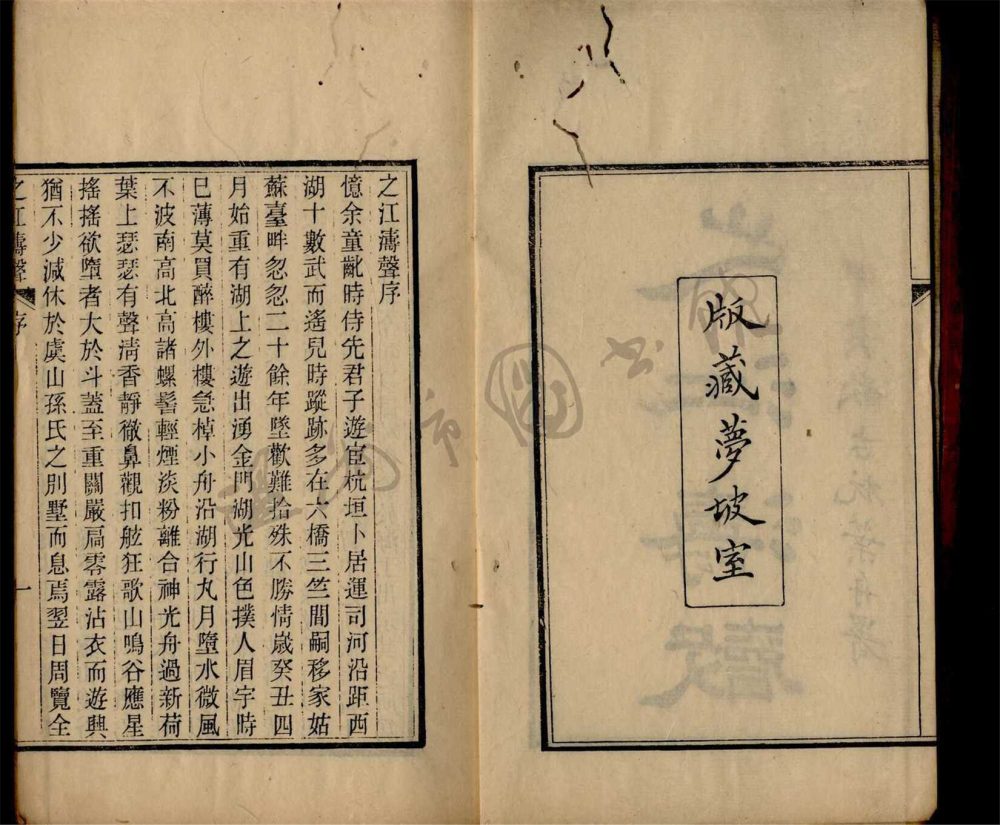 版藏夢坡室
之江濤聲序
憶余童齔時侍先君子遊宦杭垣卜居運司河沿距西
湖十數武而遙兒時蹤跡多在六橋三竺間嗣移家姑
蘇臺畔忽忽二十餘年墜歡難拾殊不勝情歲癸丑四
月始重有湖上之遊出湧金門湖光山色撲人眉宇時
巳薄莫買醉樓外樓急棹小舟沿湖行丸月墮水微風
不波南高北高諸螺髻輕煙淡粉離合神光舟過新荷
葉上瑟瑟有聲清香靜微鼻觀扣舷狂歌山鳴谷應星
搖搖欲墮者大於斗蓋至重闢嚴扃零露沾衣而遊興
猶不少減休於虞山孫氏之別墅而息焉翌日周覽全
之江濤聲 序 一